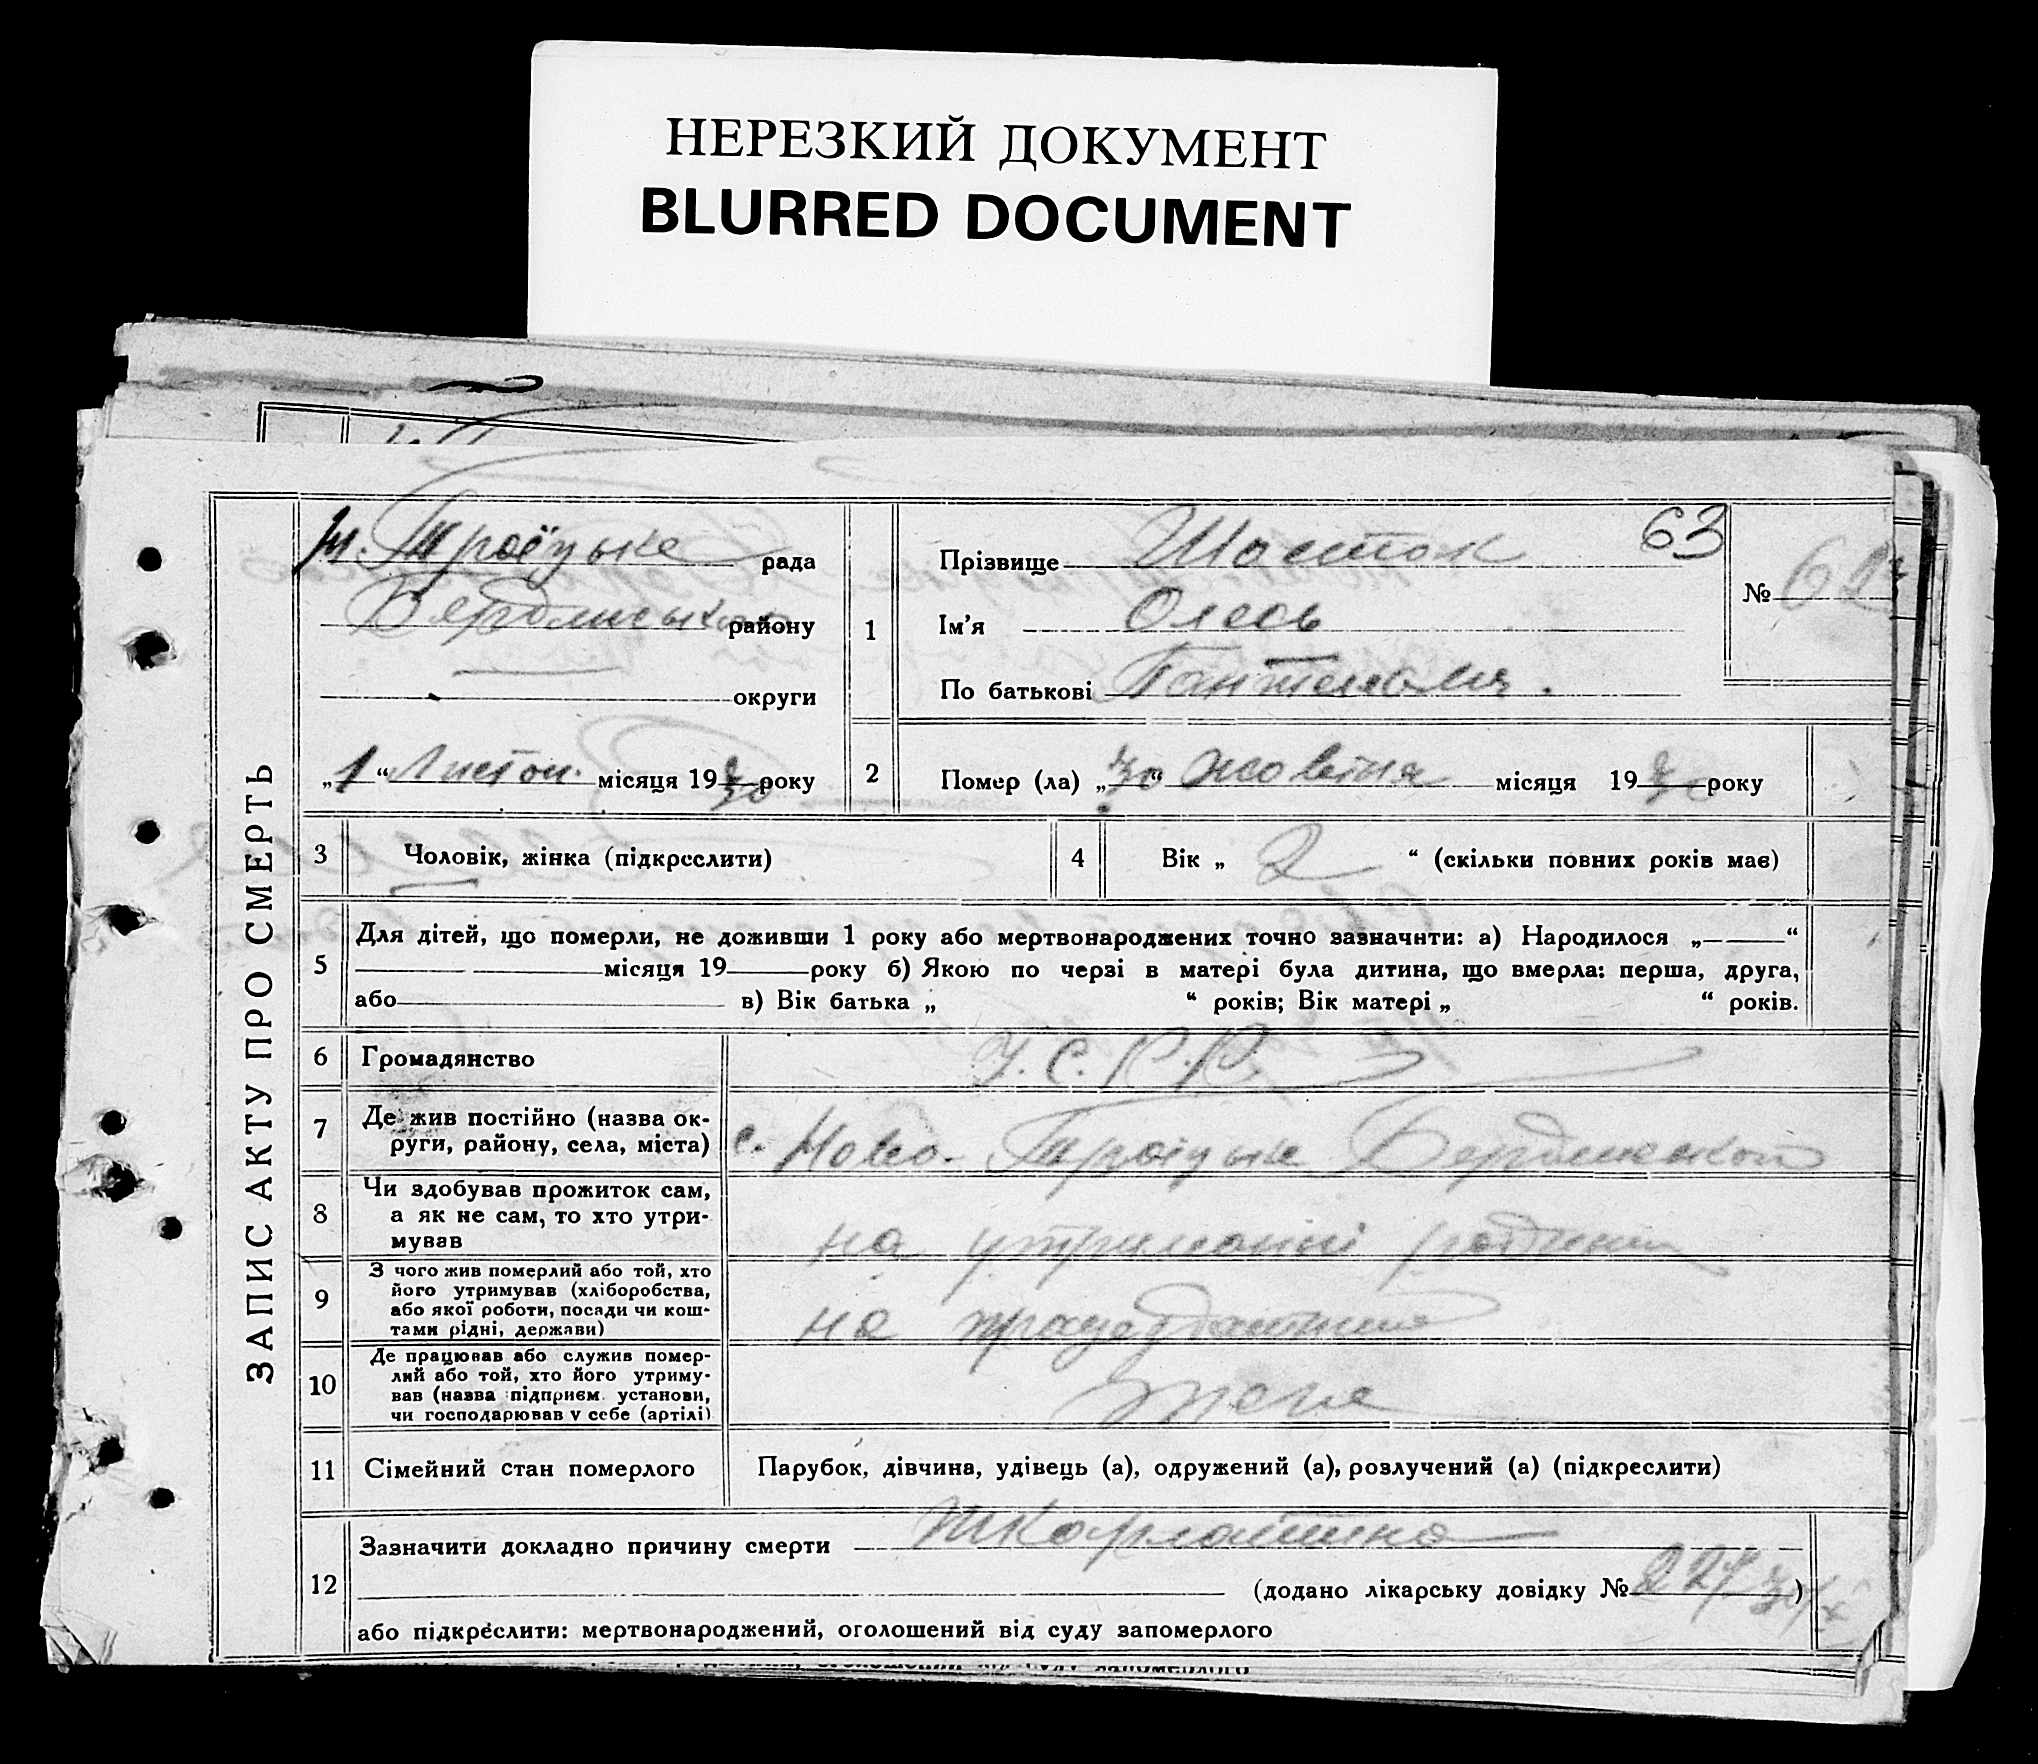 НЕРЕЗКИЙ ДОКУМЕНТ
BLURRED DOCUMENT
ЗАПИС АКТУ ПРО СМЕРТЬ
Н. Троїцьке рада
Бердянського району
округи
„1“ Листоп. місяця 1930 року
63
№
1
Прізвище Шосток
Ім’я Олесь
По батькові
2
Помер (ла) „30“ жовтня місяця 1930 року
3
Чоловік, жінка (підкреслити)
4
Вік „2“ (скільки повних років має)
5
Для дітей, що померли, не доживши 1 року або мертвонароджених точно зазначити: а) Народилося „—“
місяця 19 року б) Якою по черзі в матері була дитина, що вмерла: перша, друга,
або в) Вік батька „ “ років; Вік матері „ “ років.
6
Громадянство
У.С.Р.Р.
7
Де жив постійно (назва ок-
руги, району, села, міста)
с. Ново-Троїцьке Бердянського
8
Чи здобував прожиток сам,
а як не сам, то хто утри-
мував
на утриманні родини
9
З чого жив померлий або той, хто
його утримував (хліборобства,
або якої роботи, посади чи кош-
тами рідні, держави)
на
10
Де працював або служив помер-
лий або той, хто його утриму-
вав (назва підприєм. установи,
чи господарював у себе (артілі)
11
Сімейний стан померлого
Парубок, дівчина, удівець (а), одружений (а), розлучений (а) (підкреслити)
12
Зазначити докладно причину смерти шкарлатина
(додано лікарську довідку № )
або підкреслити: мертвонароджений, оголошений від суду запомерлого